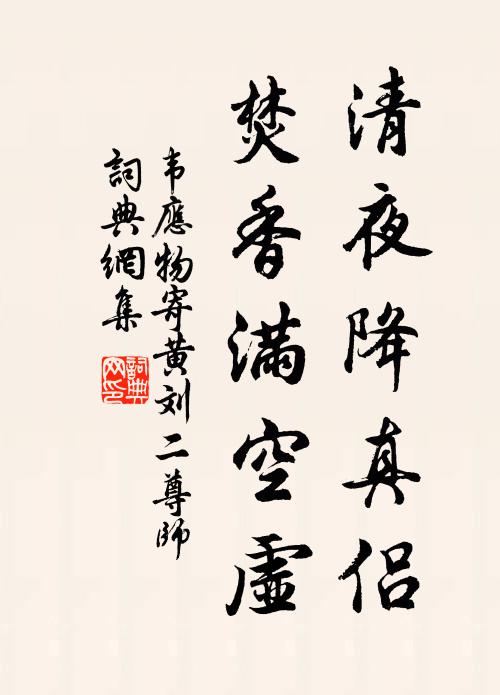 清夜降真侣
焚香满空虛
韦應物寄黄刘二尊師
詞典網集
詞典网印